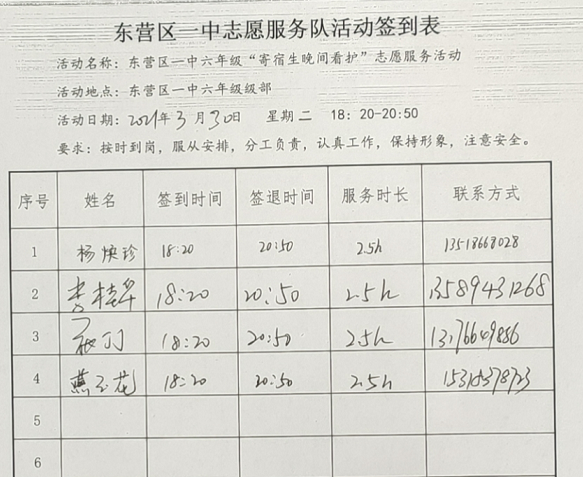 东营区一中志愿服务队活动签到表
活动名称：东营区一中六年级“寄宿生晚间看护”志愿服务活动
活动地点：东营区一中六年级级部
活动日期：2021年3月30日 星期二 18：20-20:50
要求：按时到岗，服从安排，分工负责，认真工作，保持形象，注意安全。
序号 姓名 签到时间 签退时间 服务时长 联系方式
1 杨焕珍 18:20 20:50 2.5h 13518668028
2 李桂华 18:20 20:50 2.5h 13589431268
3 18:20 20:50 2.5h
4 燕玉花 18:20 20:50 2.5h
5
6